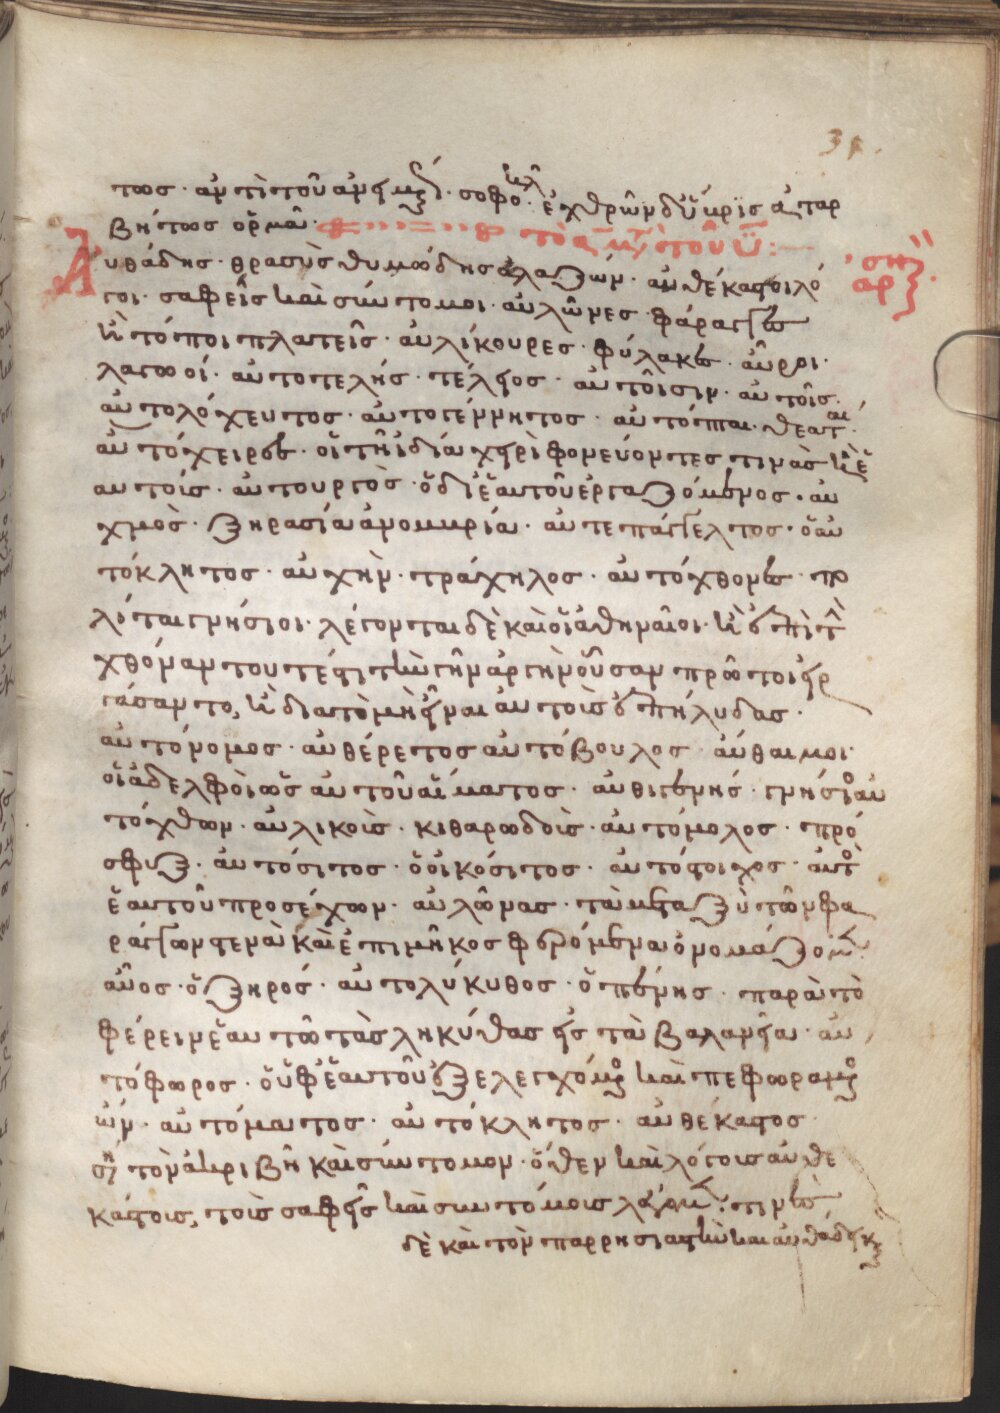 τως · ἀντὶ τοῦ ἀνέμει · σοφοκλ · ἐχθρῶν δύσκρϊς ἀταρ
βήτως ὁρμᾶ · τὸ α μετὰ τοῦ ϋ :
Αὐθάδης · θρασὺς θυμώδης ἀλαζών · αὐθέκαστοι λό
γοι · σαφεῖς καὶ σύντομοι · αὐλῶνες · φάραγγες
καὶ τόποι πλατεῖς · αὐλίκουρες · φύλακες · αὖροι ·
λαγωοί · αὐτοτελής · τέλειος · αὐτοῖσιν · αὐτοῖς ·
αὐτολόχευτος · αὐτογέννητος · αὐτόπται · θεαταί ·
αὐτόχειρες · οἱ τῇ ἰδία χειρὶ φονεύοντες τινὰς καὶ ἑ
αυτοίς · αὐτουργὸς · ὁ δι ἑαυτοῦ ἐργαζόμενος · αὐ
χμὸς · ξηρασία ἀνομβρία · αὐτεπάγγελτος · ὁ αὐ
τόκλητος · αὐχὴν · τράχηλος · αὐτόχθονες · πο
λίται γνήσιοι · λέγονται δὲ καὶ οἱ ἀθηναῖοι · καὶ ἐπὶ τὴν
χθόναν τουτέστι τὴν γῆν ἀργὴν οὖσαν πρῶτοι εἰρ
γάσαντο, καὶ διὰ τὸ μὴ εἶναι αὐτοὶς ἐπήλυδας ·
αὐτόνομος · αὐθέρετος αὐτόβουλος αὔθαιμοι ·
οἱ ἀδελφοὶ ὡς αὐτοῦ αἵματος · αὐθιγενής · γνήσιος αὐ
τόχθων · αὐλικοὶς · κιθαρωδοὶς · αὐτόμολος · πρό
σφυξ · αὐτόσιτος · ὁ οἰκόσιτος · αὐτόστοιχος · αὐτὸ
ἑαυτοῦ προσέχων · αὐλῶνας · τὰ μεταξὺ τῶν φα
ράγγων στενὰ καὶ ἐπιμῆκος φερόμενα ὀνομάζουσι
αὖος · ὁ ξηρός · αὐτολύκυθος · ὁ πένης · παρὰ τὸ
φέρειν ἑαυτῶ τὰς ληκύθας εἰς τὰ βαλανεῖα · αὐ
τόφωρος · ὁ ὑφ ἑαυτοῦ ἐξελεγχόμενος καὶ πεφωραμένος
ὤν · αὐτόματος · αὐτόκλητος · αὐθέκαστος
τὸν ἀκριβῆ καὶ σύντομον · ὅθεν καὶ λόγοις αὐθε
κάστοις, τοὶς σαφεῖς καὶ συντόμοις · τινὲς
δὲ καὶ τὸν παρρησιαστὴν καὶ αὐθάδεις